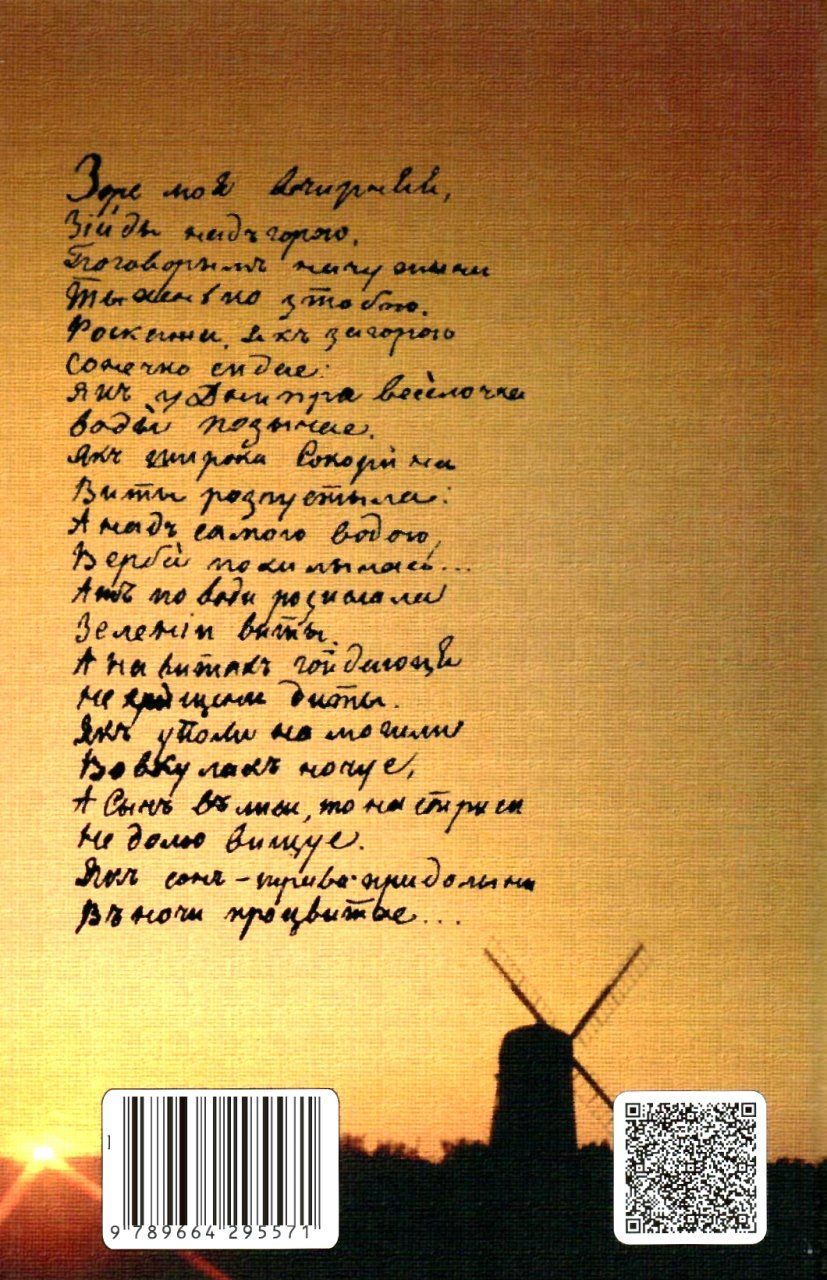 Зоре моя вчирняя,
Зійды надъ горою.
Поговорымъ ничу имы
Тыхенько з тобою.
Роскажи, якъ за горою
Сонечко сидае:
Якъ у Днипра весёлочка
Воды позычае.
Якъ широка Сокорина
Виты розпустыла:
А надъ самою водою,
Верба похилылась...
Ажъ по води розислала
Зелении виты.
А на витахъ гойдаюця
Не хрищени диты.
Якъ у поли на могили
Вовкулакъ ночує,
А Сычъ въ лиси, то на стриси
Не долю вищуе.
Якъ сонъ-трава при долыни
Въночи процвитае...
9 789664 295571